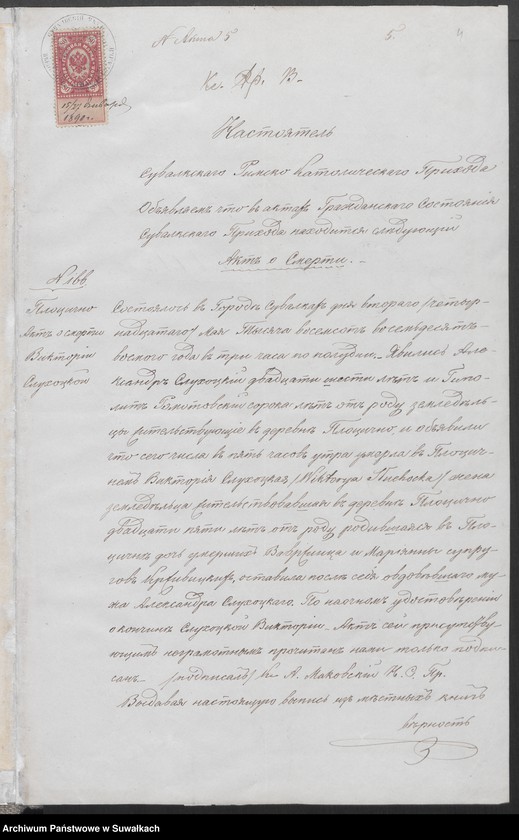 N Акта 5
5.
15/27 Января
1890 г.
Настоятель
Сувалкскаго Римско Католическаго Прихода
Объявляемъ что въ актахъ Гражданскаго Состоянія
Сувалкскаго Прихода находится следующій
Актъ о Смерти. –
N 166
Плоцично
Актъ о смерти
Викторіи
Слухоцкой
Состоялось въ Городѣ Сувалкахъ дня втораго /четыр-
надцатаго/ Мая Тысяча восемсотъ восемьдесятъ-
восмого года въ три часа по полудни. Явились Але-
ксандръ Слухоцкій двадцати шести лѣтъ и Гипо-
литъ сорока лѣтъ отъ роду земледѣль-
цы жительствующіе въ деревнѣ Плоцично, и объявили
что сего числа въ пять часовъ утра умерла въ Плоцич-
нѣ Викторія Слухоцкая /Wiktorya Słuchocka/ жена
земледѣльца жительствовавшая въ деревнѣ Плоцично
двадцати пяти лѣтъ отъ роду родившаяся въ Пло-
цичнѣ дочь умершихъ Вавржинца и Маріанны супру-
говъ оставила послѣ себя овдовѣвшаго му-
жа Александра Слухоцкаго. По наочномъ удостовѣреніи
о кончинѣ Слухоцкой Викторіи. Актъ сей присутству-
ющимъ неграмотнымъ прочитанъ нами только подпи-
санъ. /подписалъ/ Кс А. Маковскій Н. С. Пр.
Выдавая настоящую выпись изъ мѣстныхъ книгъ
вѣрность
Archiwum Państwowe w Suwałkach